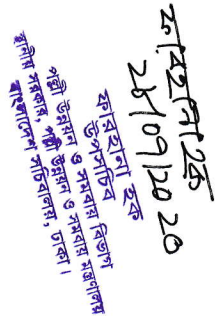 ফারহানা হক
২৮/০৭/২০২০
ফারহানা হক
উপসচিব
পল্লী উন্নয়ন ও সমবায় বিভাগ
স্থানীয় সরকার, পল্লী উন্নয়ন ও সমবায় মন্ত্রণালয়
বাংলাদেশ সচিবালয়, ঢাকা।